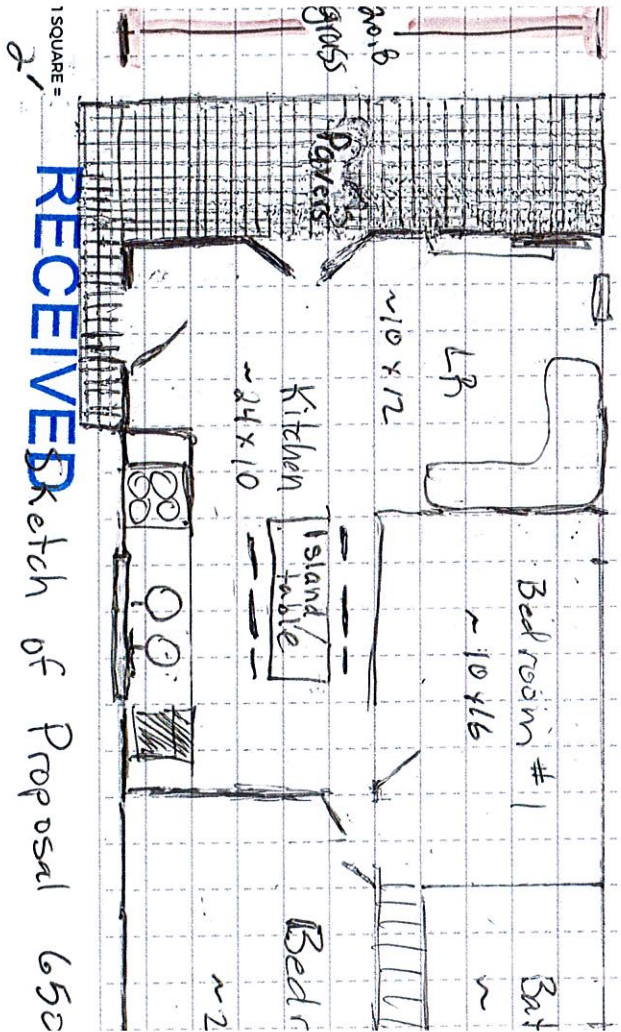 1 SQUARE =
2'
RECEIVED
Sketch of Proposal 650
glass
Pavers
LR
~10 x 12
Kitchen
~24 x 10
Island/
table
Bedroom #1
~10 x 16
Bedr
~2
Bat
~